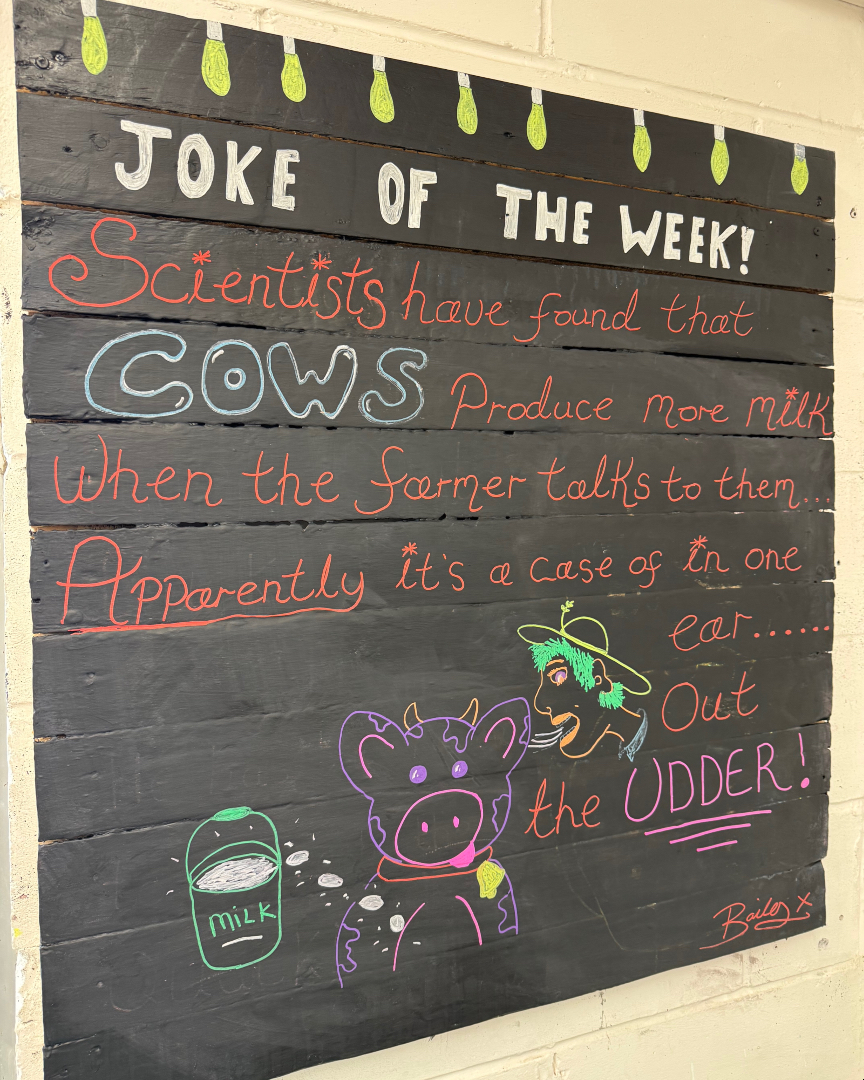 JOKE OF THE WEEK!
Scientists have found that
COWS Produce more milk
When the farmer talks to them...
Apparently it's a case of in one
ear......
Out
the UDDER!
MiLK
Bailey x